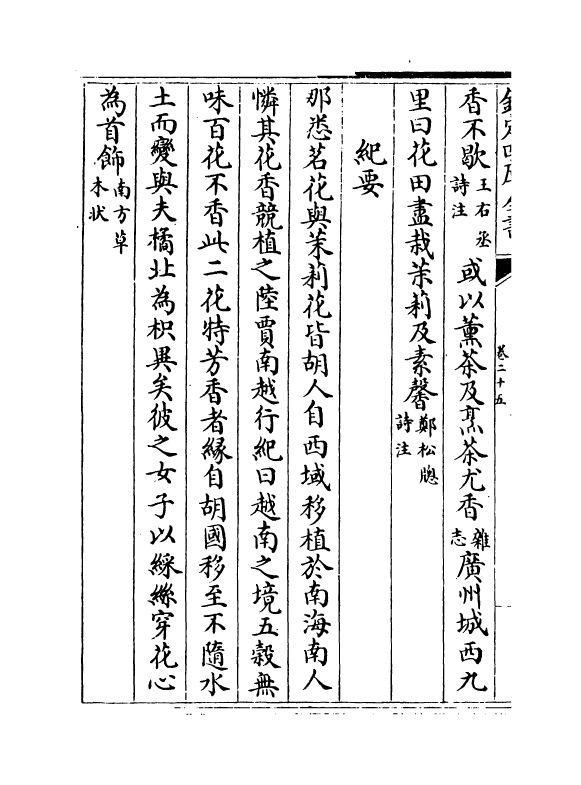 欽定四庫全書
卷二十五
香不歇王右丞詩注 或以薰茶及烹茶尤香雜志廣州城西九
里曰花田盡栽茉莉及素馨鄭松牕詩注
紀要
那悉茗花與茉莉花皆胡人自西域移植於南海南人
憐其花香競植之陸賈南越行紀曰越南之境五穀無
味百花不香此二花特芳香者緣自胡國移至不隨水
土而變與夫橘北為枳異矣彼之女子以綵絲穿花心
為首飾南方草木狀